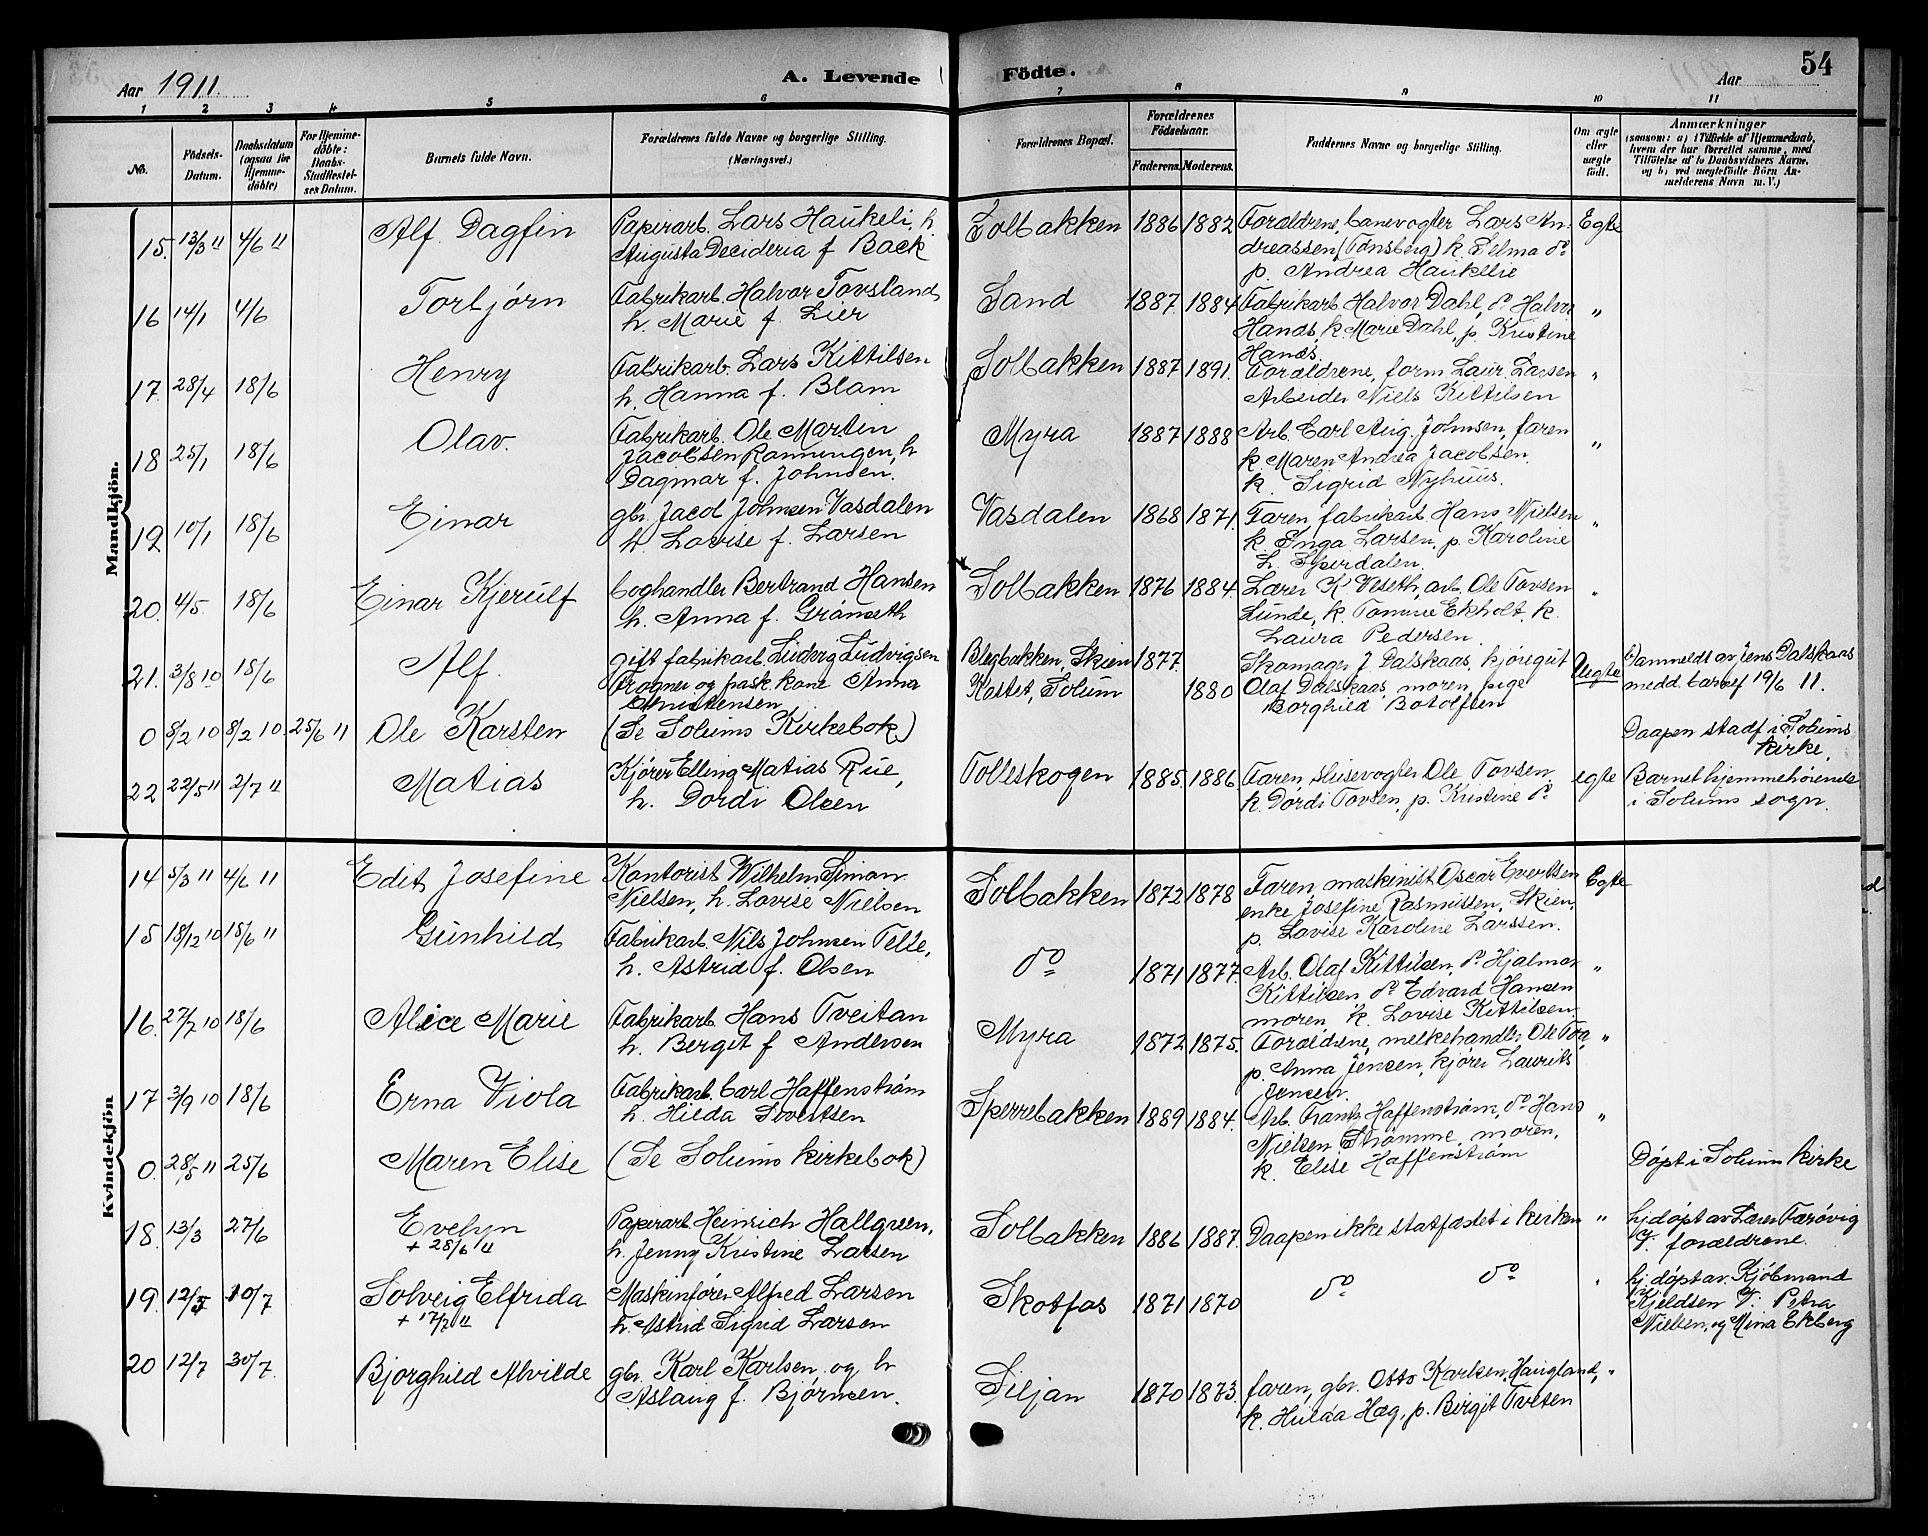 Aar 1911.
A. Levende Födte.
Aar
54
1 2 3 4 5 6 7 8 9 10 11
No.
Födsels-Datum.
Daabsdatum (ogsaa for Hjemme-döbte)
For Hjemme-döbte: Daabs-Stadfæstel-ses Datum.
Barnets fulde Navn.
Forældrenes fulde Navne og borgerlige Stilling. (Næringsvei.)
Forældrenes Bopæl.
Forældrenes Födselsaar.
Faderens. Moderens.
Faddernes Navne og borgerlige Stilling.
Om ægte eller uægte födt.
Anmærkninger
(saasom: a) i Tilfælde af Hjemmedaab,
hvem der har forrettet samme, med
Tilföielse af to Daabsvidners Navne,
og b) ved uægtefödte Börn An-
melderens Navn m. V.)
Mandkjön.
15. 13/3 11 4/6 11 Alf Dagfin Papirarb. Lars Haukeli, h. Solbakken 1886 1882 Forældrene, banevogter Lars An- Egte
Augusta Decideria f Back dreassen (Tønsberg) k. Selma do
p. Andrea Haukelie
16 14/1 4/6 Torbjörn Fabrikarb. Halvor Tovsland Sand 1887 1884 Fabrikarb Halvor Dahl, do Halvor "
h. Marie f. Lier Hanås, k. Marie Dahl, p. Kristine
Hanås.
17. 28/4 18/6 Henry Fabrikarb. Lars Kittilsen Solbakken 1887 1891. Forældrene, form Laur. Larsen "
h. Hanna f. Blam Arbeider Niels Kittilsen
18 25/1 18/6 Olav. Fabrikarb. Ole Martin Myra 1887 1888 Arb. Carl Aug. Johnsen, faren "
Jacobsen Rønningen, h k. Maren Andrea Jacobsen
Dagmar f. Johnsen. k. Sigrid Nyhuus.
19 10/1 18/6 Einar gbr. Jacob Johnsen Vasdalen Vasdalen 1868 1871. Faren, fabrikarb. Hans Nielsen "
h. Lovise f. Larsen k. Inga Larsen, p. Karoline
20. 4/5. 18/6 Einar Kjerulf boghandler Bertrand Hansen Solbakken 1876 1884. Lærer K. Veseth, arb. Ole Tovsen "
h. Anna f. Gramseth Lunde, k. Tomine Ekholt, k.
Laura Pedersen
21. 3/8 10 18/6 Alf. gift fabrikarb Ludvig Ludvigsen Blegbakken, Skien 1877. Skomager J. Dalskaas, kjøregut Uegte Danmeldt av Jens Dalskaas
Krogner og frask. kone Anna Kastet, Solum 1880 Olaf Dalskaas, moren, pige medd. barnef 19/6 11.
Christensen Borghild Botolfsen
0 8/2 10 8/2 10. 25/6 11 Ole Karsten (Se Solums Kirkebok) Daapen stadf i Solums
kirke.
22 22/5 11 2/7 11 Matias Kjører Elling Matias Rue, Tolleskogen 1885. 1886 Faren, slusevogter Ole Tovsen, egte Barnet hjemmehørende
h. Dordi Olsen k. Dordi Tovsen, p. Kristine do i Solums sogn.
Kvindekjön
14 5/3 11 4/6 11 Edit Josefine Kontorist Wilhelm Simon Solbakken 1872 1878 Faren, maskinist Oscar Evertsen Egte
Nielsen, h. Lovise Nielsen enke Josefine Rasmussen, Skien,
p. Lovise Karoline Larssen.
15 18/12 10 18/6 11 Gunhild Fabrikarb. Nils Johnsen Telle, do 1871 1877. Arb. Olaf Kittilsen, do Hjalmar "
h. Astrid f. Olsen Kittilsen do Edvard Hansen
moren, k. Lovise Kittilsen
16. 27/7 10 18/6 Alice Marie Fabrikarb Hans Tveitan Myra 1872 1875. Forældrene, melkehandler Ole Foa, "
h. Bergit f Andersen p. Anna Jensen, kjører Laurits
Jensen.
17 3/9 10 18/6 Erna Viola Fabrikarb. Carl Haffenstrøm Sperrebakken 1889 1884. Arb. Frantz Haffenstrøm, do Hans "
h. Hilda Sivertsen Nielsen Strømme, moren,
k. Elise Haffenstrøm
0. 28/5 11 25/6 Maren Elise (Se Solums kirkebok) Døpt i Solums kirke
18. 13/3 27/6 Evelyn Papirarb Heinrich Hallgreen, Solbakken 1886 1887. Daapen ikke statfæstet i kirken " hj døpt av Lærer Færøvig
+ 28/6 11 h. Jenny Kristine Larsen V. forældrene.
19. 12/5 10/7 Solveig Elfrida Maskinfører Alfred Larsen Skotfos 1871 1870 do do " hj. døpt av Kjöbmand
+ 17/7 11 h. Astrid Sigrid Larsen Kjeldsen V: Petra
Nielsen, og Mina Ekberg
20 12/7 30/7 Bjorghild Alvilde gbr. Karl Karlsen og h Siljan 1870 1873. faren, gbr. Otto Karlsen Haugland, "
Aslaug f. Bjørnsen. k. Hulda Hæg, p. Birgit Tveten